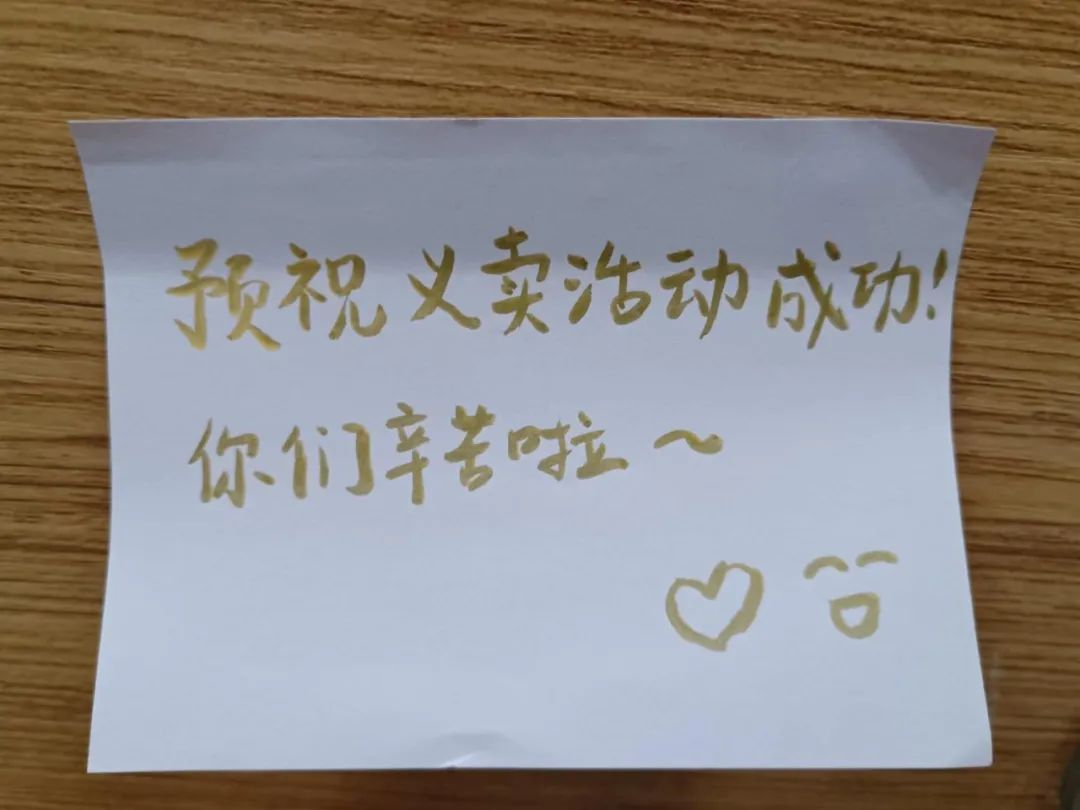 预祝义卖活动成功!
你们辛苦啦~